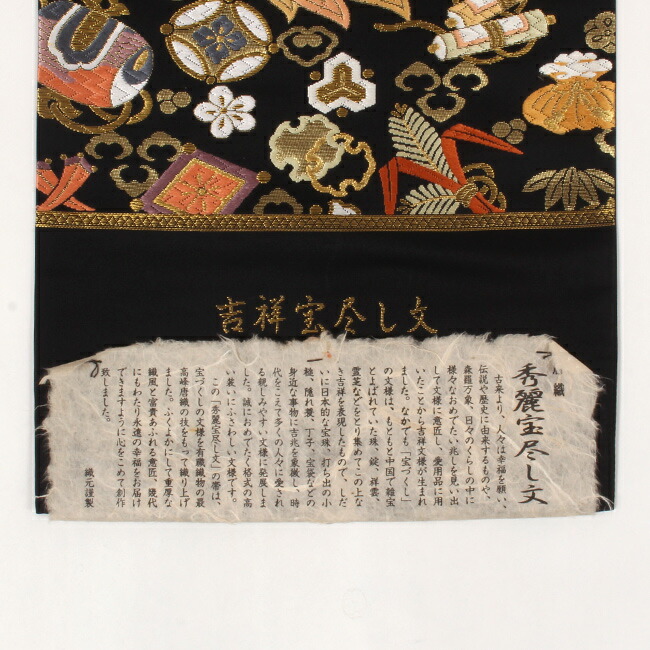 吉祥宝尽し文
織
秀麗宝尽し文
古来より、人々は幸福を願い、
伝説や歴史に由来するものや、
森羅万象、日々のくらしの中に
様々なおめでたい兆しを見い出
して文様に意匠し、愛用品に用
いたことから吉祥文様が生まれ
ました。なかでも「宝づくし」
の文様は、もともと中国で雑宝
とよばれていた珠、錠、祥雲、
霊芝などをとり集めてこの上な
き吉祥を表現したもので、しだ
いに日本的な宝珠、打ち出の小
槌、隠れ蓑、丁子、宝袋などの
身近な事物に吉兆を象徴し、時
代をこえて多くの人々に愛され
る親しみやすい文様に発展しま
した。誠におめでたく格式の高
い装いにふさわしい文様です。
この「秀麗宝尽し文」の帯は、
宝づくしの文様を有職織物の最
高峰唐織の技をもって織り上げ
ました。ふくよかにして重厚な
織風と富貴あふれる意匠、幾代
にもわたり永遠の幸福をお届け
できますように心をこめて創作
致しました。
織元謹製